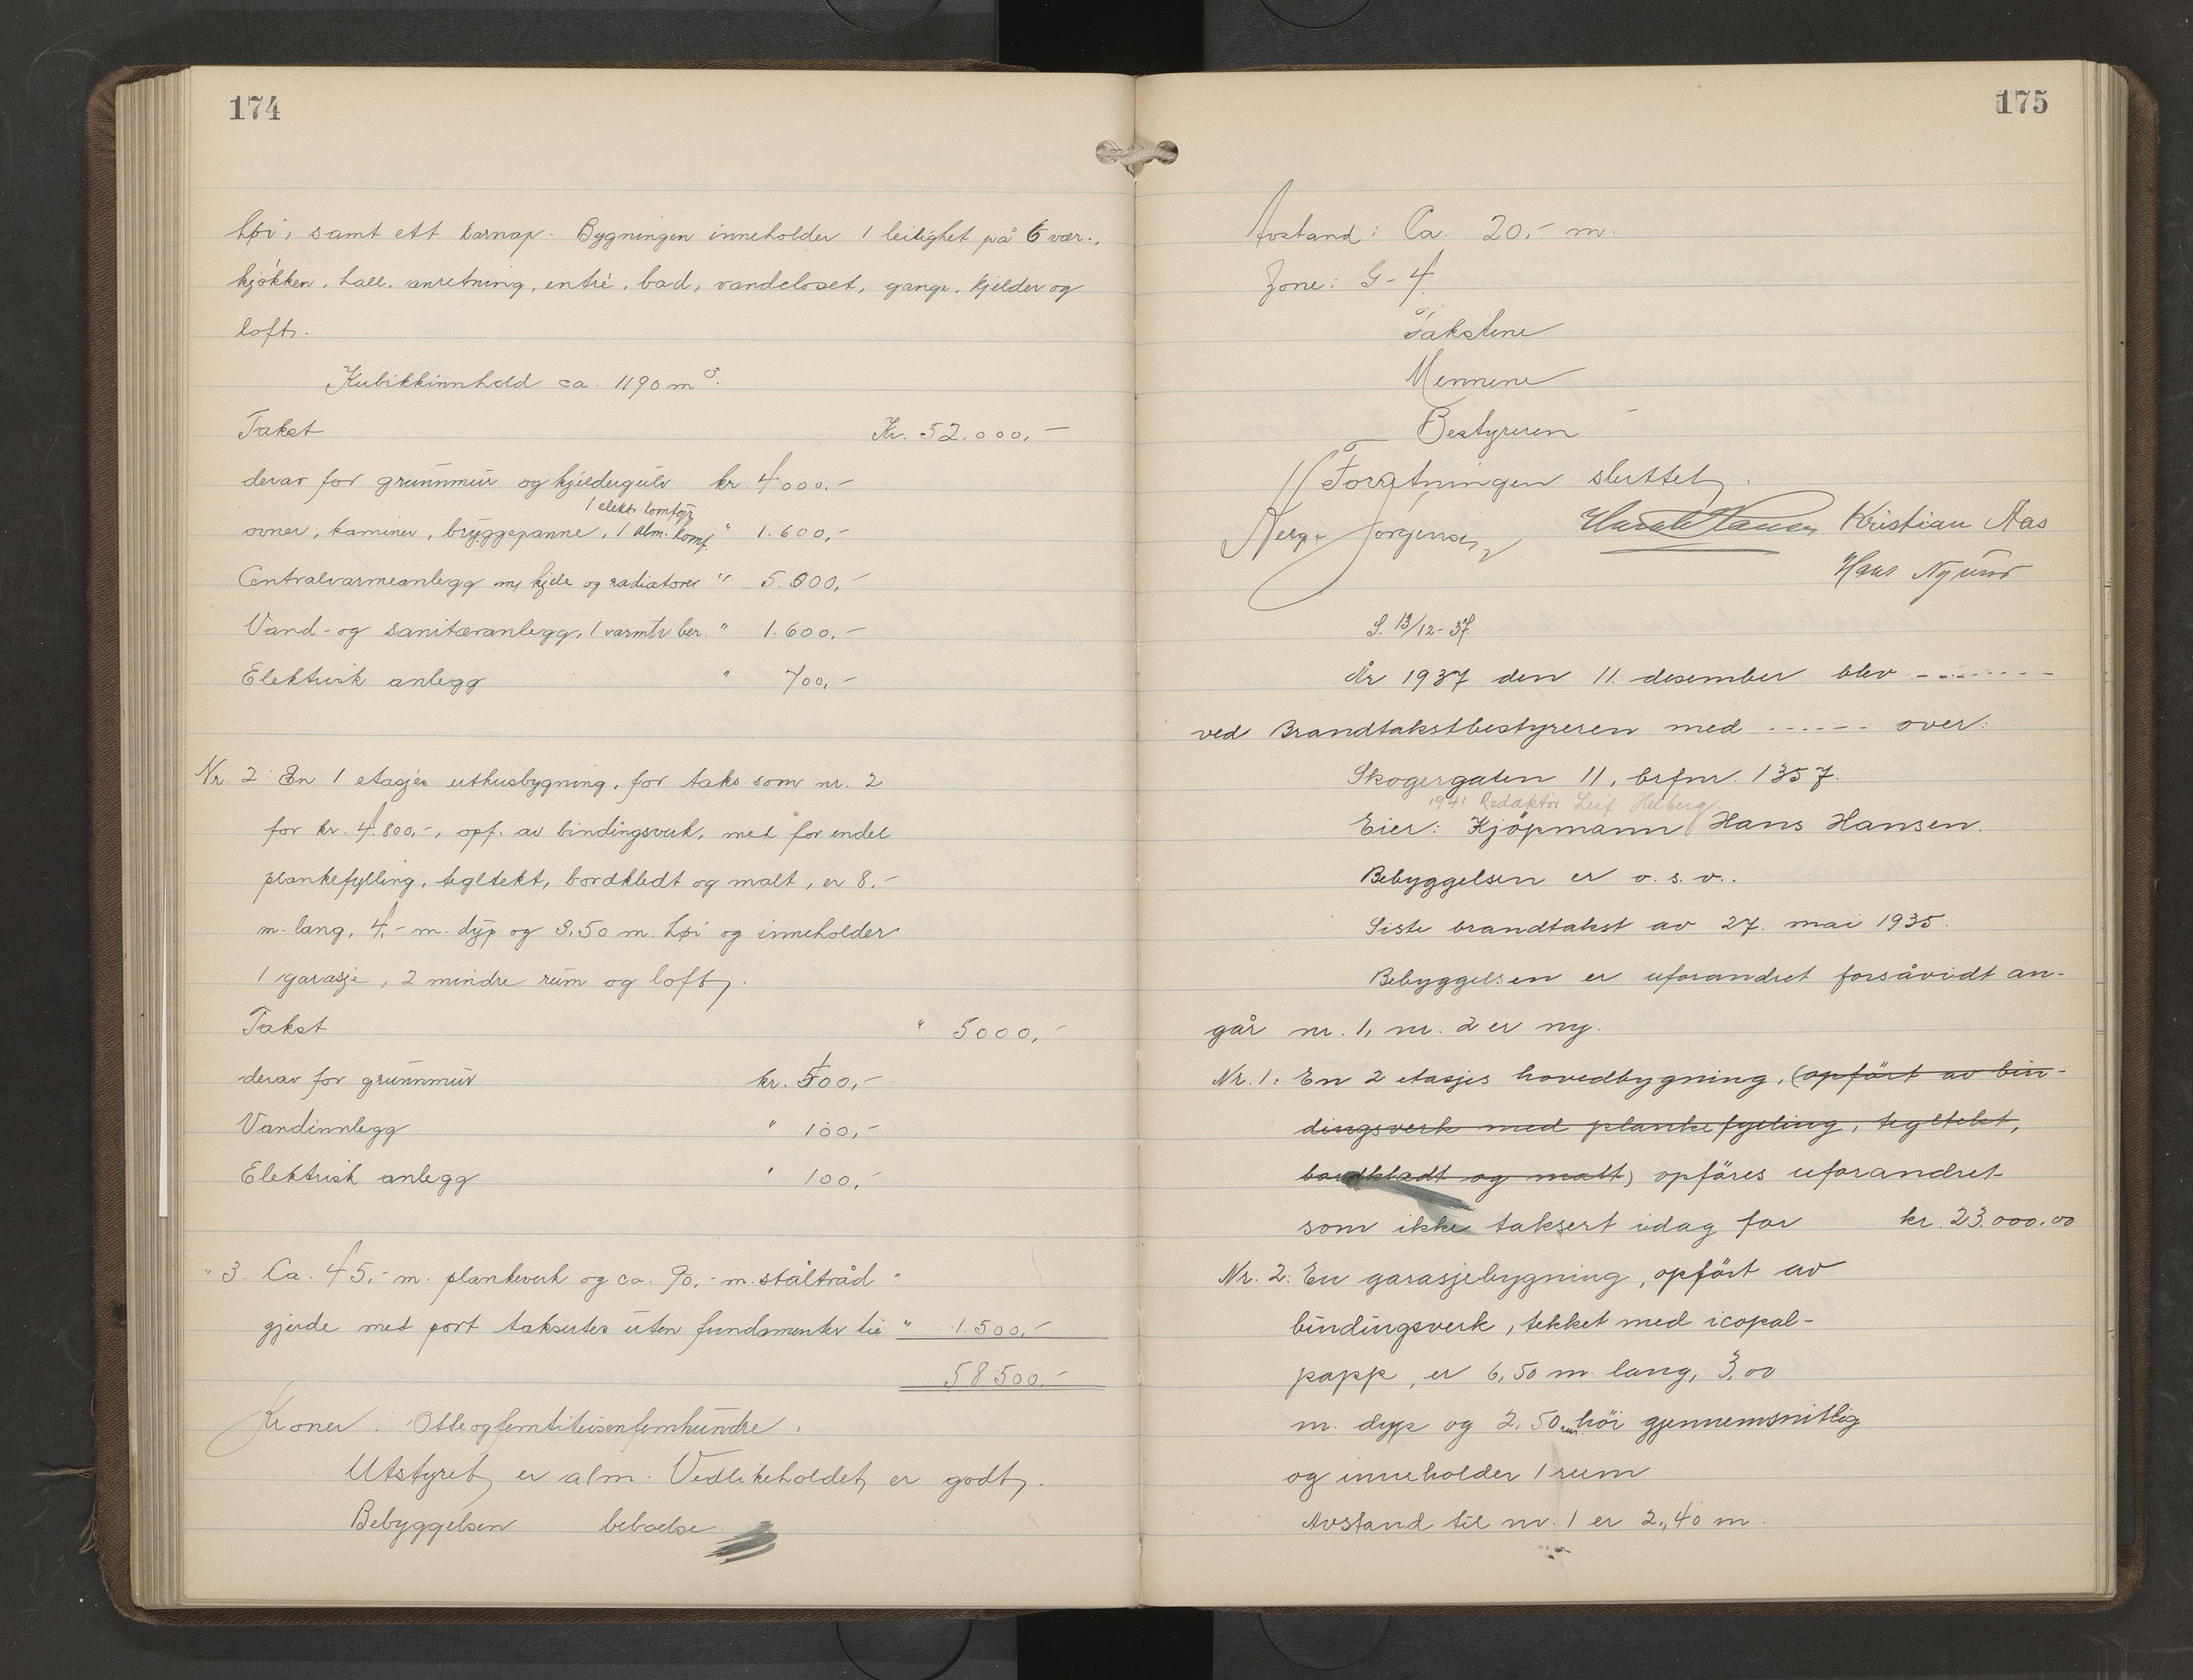 174
høi, samt ett karnap. Bygningen inneholder 1 leilighet på 6 vær.,
kjøkken, hall, anretning, entré, bad, vandcloset, gange, kjelder og
loft.
Kubikkinnhold ca. 1190 m³.
Takst Kr. 52.000,-
derav for grunnmur og kjeldergulv kr. 4000.-
1 elektr. komfyr
ovner, kaminer, bryggepanne, 1 alm. komf. " 1.600,-
Centralvarmeanlegg m/ kjele og radiatorer " 5.000,-
Vand- og sanitæranlegg, 1 varmtv.ber. " 1.600,-
Elektrisk anlegg " 700,-
Nr. 2: En 1 etasjes uthusbygning, før taks. som nr. 2
for kr. 4.800,-, opf. av bindingsverk, met for endel
plankefylling, tegltekt, bordkledt og malt, er 8,-
m. lang, 4,- m. dyp og 3,50 m. høi og inneholder
1 garasje, 2 mindre rum og loft.
Takst " 5000,-
derav for grunnmur kr. 500,-
Vandinnlegg " 100,-
Elektrisk anlegg " 100,-
" 3. Ca. 45,- m. plankeverk og ca. 90,- m. ståltråd-
gjerde met port takseres uten fundamenter til " 1.500,-
58500.-
Kroner: Otteogfemtitusenfemhundre.
Utstyret er alm. Vedlikeholdet er godt.
Bebyggelsen beboelse
175
Avstand: Ca. 20,- m.
Zone: G-4.
Takstene
Mennene
Bestyreren
Forretningen sluttet.
Helge Jørgensen Harald Hansen Kristian Aas
Hans Nylund
S. 13/12-37.
År 1937 den 11. desember blev --------
ved Brandtakstbestyreren med ------ over:
Skogergaten 11, brfnr. 1357.
1941 Redaktör Leif Helberg
Eier: Kjöpmann Hans Hansen.
Bebyggelsen er o. s. v..
Siste brandtakst av 27. mai 1935.
Bebyggelsen er uforandret forsåvidt an-
går nr. 1, nr. 2 er ny.
Nr. 1: En 2 etasjes hovedbygning, (opfört av bin-
dingsverk med plankefylling, tegltekt,
bordklædt og malt) opföres uforandret
som ikke taksert idag for kr. 23.000.00
Nr. 2: En garasjebygning, opfört av
bindingsverk, tekket med icopal-
papp, er 6,50 m. lang, 3,00
m. dyp og 2,50 m. höi gjennemsnitlig
og inneholder 1 rum
Avstand til nr. 1 er 2,40 m.